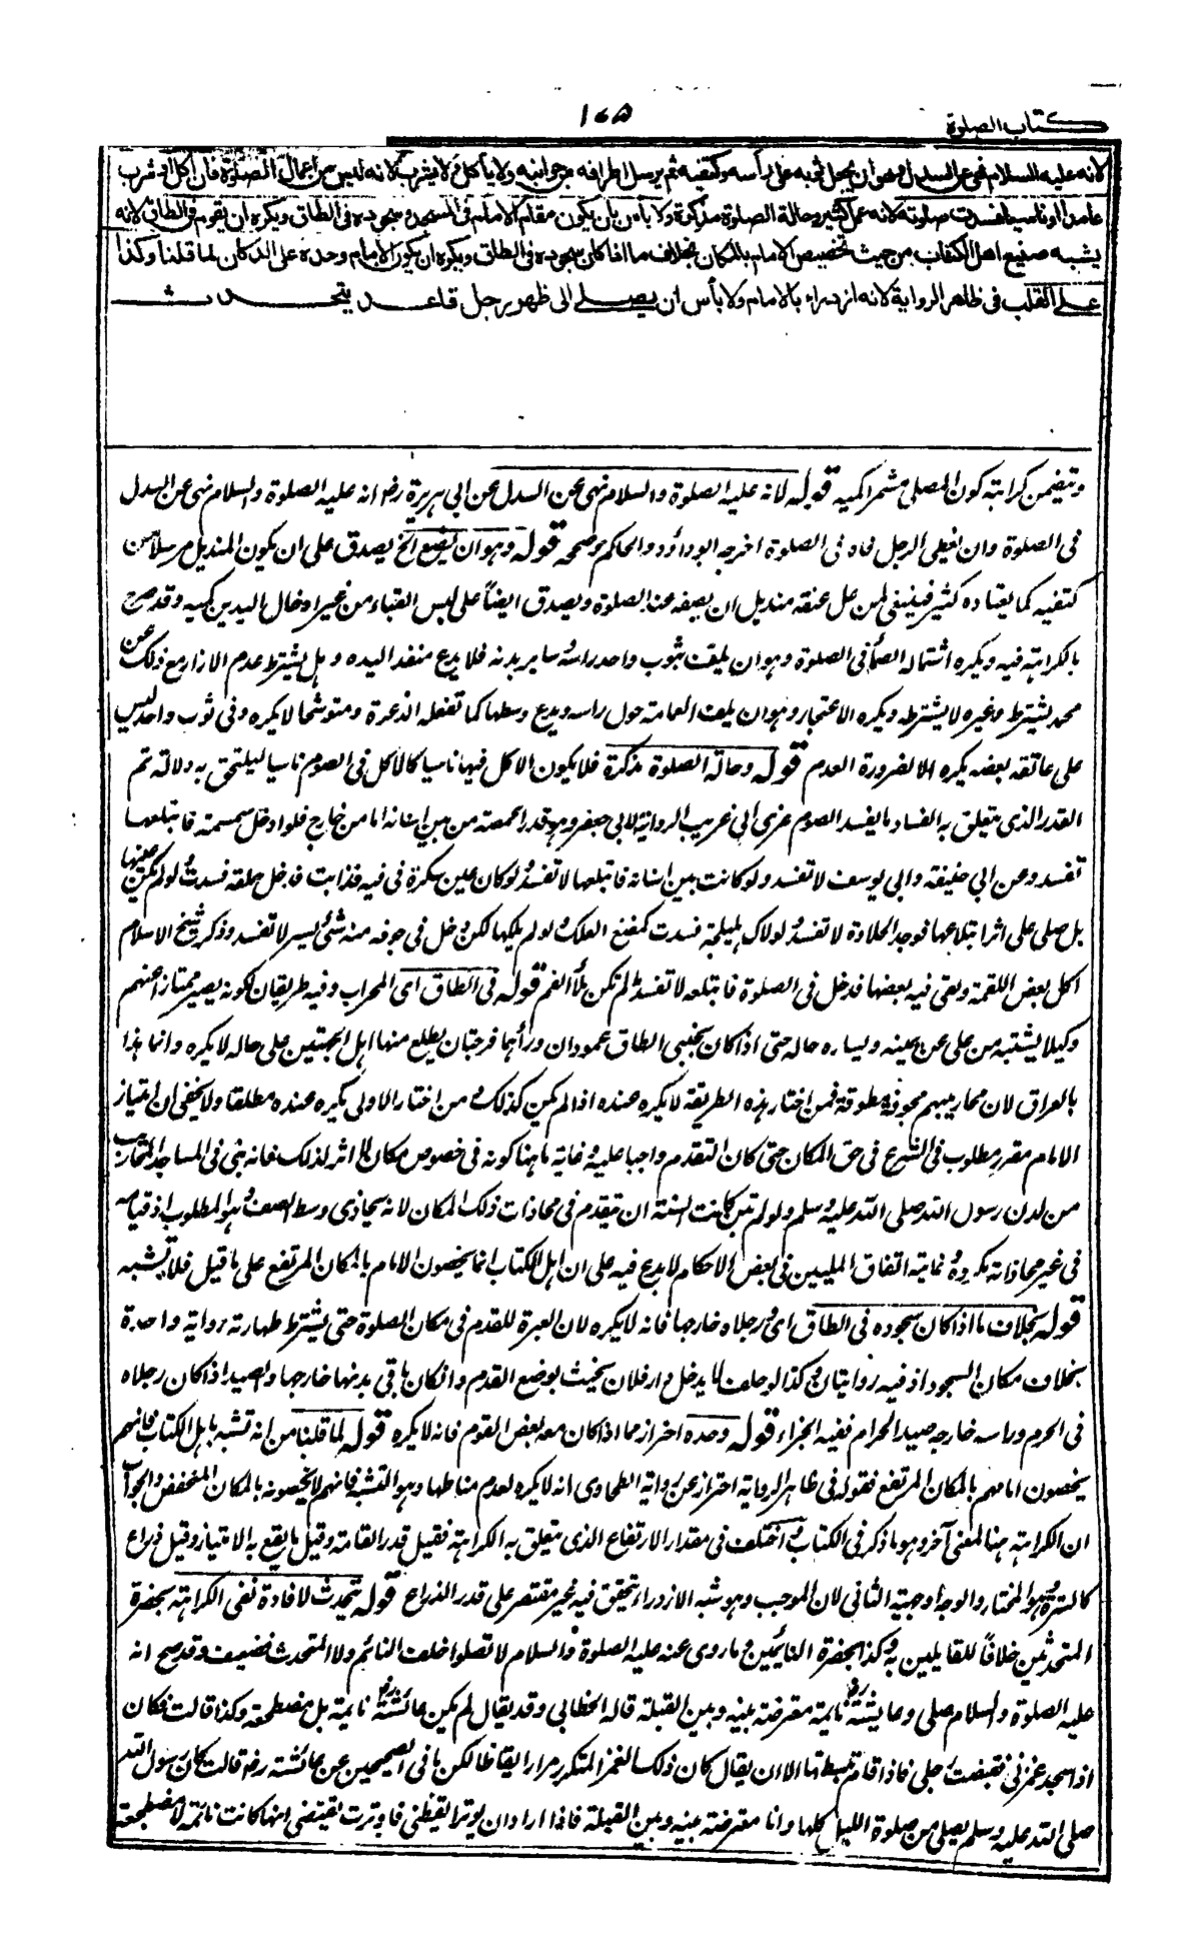 كتاب الصلوة
١٧٥
لانه عليه السلام نهى عن السدل وهو ان يجعل ثوبه على رأسه وكتفيه ثم يرسل اطرافه من جوانبه ولا يأكل ولا يشرب لانه ليس من اعمال الصلوة فان اكل او شرب
عامدا او ناسيا فسدت صلوته لانه عمل كثير وحالة الصلوة مذكرة ولا بأس بان يكون مقام الامام في المسجد وسجوده في الطاق ويكره ان يقوم في الطاق لانه
يشبه صنيع اهل الكتاب من حيث تخصيص الامام بالمكان بخلاف ما اذا كان سجوده في الطاق ويكره ان يكون الامام وحده على الدكان لما قلنا وكذا
على القلب في ظاهر الرواية لانه ازدراء بالامام ولا بأس ان يصلى الى ظهر رجل قاعد يتحدث
وتتضمن كراهته كون المصلى مشمرا كميه قوله لانه عليه الصلوة والسلام نهى عن السدل عن ابى هريرة رض انه عليه الصلوة والسلام نهى عن السدل
فى الصلوة وان يغطى الرجل فاه فى الصلوة اخرجه ابو داؤد والحاكم وصححه قوله وهو ان يضع الخ يصدق على ان يكون المنديل مرسلا من
كتفيه كما يعتاده كثير فينبغى لمن على عنقه منديل ان يضعه عند الصلوة ويصدق ايضاً على لبس القباء من غير ادخال اليدين كميه وقد صرح
بالكراهة فيه ويكره اشتمال الصمآء فى الصلوة وهو ان يلف بثوب واحد راسه وساير بدنه فلا يدع منفذا ليده وهل يشترط عدم الازار مع ذلك عن
محمد يشترط وغيره لا يشترطه ويكره الاعتجار وهو ان يلف العمامة حول راسه ويدع وسطها كما تفعله الدعرة ومتوشحا لا يكره وفى ثوب واحد ليس
على عاتقه بعضه يكره الا لضرورة العدم قوله وحالة الصلوة مذكرة فلا يكون الاكل فيها ناسيا كالاكل فى الصوم ناسيا ليلتحق به دلالة ثم
القدر الذى يتعلق به الفساد ما يفسد الصوم عزى الى غريب الرواية لابى جعفر وهو قدر الحمصة من بين اسنانه اما من خارج فلو ادخل سمسمة فابتلعها
تفسد وعن ابى حنيفة وابى يوسف لا تفسد ولو كانت بين اسنانه فابتلعها لا تفسد ولو كان عين سكرة فى فيه فذابت فدخل حلقه فسدت ولو لم تكن عينها
بل صلى على اثر ابتلاعها فوجد الحلاوة لا تفسد ولو لاك هليلجة فسدت كمضغ العلك ولو لم يلكها لكن دخل فى جوفه منه شئ يسير لا تفسد وذكر شيخ الاسلام
اكل بعض اللقمة وبقى فى فيه بعضها فدخل فى الصلوة فابتلعه لا تفسد ما لم تكن ملأ الفم قوله فى الطاق اى المحراب وفيه طريقان لكونه يصير ممتازا عنهم
وكيلا يشتبه من على عن يمينه ويساره حاله حتى اذا كان بجنبى الطاق عمودان ورأهما فرجتان يطلع منها اهل الجهتين على حاله لا يكره وانما هذا
بالعراق لان محاريبهم مجوفة مطوقة فمن اختار هذه الطريقة لا يكره عنده اذا لم يكن كذلك ومن اختار الاولى يكره عنده مطلقا ولا يخفى ان امتياز
الامام مقرر مطلوب فى الشرع فى حق المكان حتى كان التقدم واجبا عليه وغاية ما هنا كونه فى خصوص مكان ولا اثر لذلك فانه بنى فى المساجد المحاريب
من لدن رسول الله صلى الله عليه وسلم ولو لم تبن كانت السنة ان يتقدم فى محاذات ذلك المكان لانه يحاذى وسط الصف وهو المطلوب اذ قيامه
فى غير محاذاته مكروه وغايته اتفاق الملتين فى بعض الاحكام ولا بدع فيه على ان اهل الكتاب انما يخصون الامام بالمكان المرتفع على ما قيل فلا تشبه
قوله بخلاف ما اذا كان سجوده فى الطاق اى ورجلاه خارجها فانه لا يكره لان العبرة للقدم فى مكان الصلوة حتى يشترط طهارته رواية واحدة
بخلاف مكان السجود اذ فيه روايتان وكذا لو حلف لا يدخل دار فلان يحنث بوضع القدم وان كان باقى بدنها خارجها والصيد اذا كان رجلاه
فى الحرم وراسه خارجه صيد الحرام ففيه الجزاء قوله وحده احتراز عما اذا كان معه بعض القوم فانه لا يكره قوله لما قلنا من انه تشبه باهل الكتاب فانهم
يخصون امامهم بالمكان المرتفع فقوله فى ظاهر الرواية احتراز عن رواية الطحاوى انه لا يكره لعدم مناطها وهو التشبه فانهم لا يخصونه بالمكان المنخفض والجواب
ان الكراهة هنا لمعنى آخر وهو ما ذكر فى الكتاب واختلف فى مقدار الارتفاع الذى يتعلق به الكراهة فقيل قدر القامة وقيل ما يقع به الامتياز وقيل ذراع
كالسترة وهو المختار والوجه اوجهية الثانى لان الموجب وهو شبه الازدراء يتحقق فيه غير مقتصر على قدر الذراع قوله يتحدث لافادة نفى الكراهة بحضرة
المتحدثين خلافاً للقايلين به وكذا بحضرة النائمين وما روى عنه عليه الصلوة والسلام لا تصلوا خلف النائم ولا المتحدث فضعيف وقد صح انه
عليه الصلوة والسلام صلى وعايشة رض نائمة معترضة بينه وبين القبلة قاله الخطابى وقد يقال لم يكن عائشة رض نايمة بل مضطجعة وكذا قالت فكان
اذا سجد غمزنى فقبضت رجلى فاذا قام بسطتها الا ان يقال كان ذلك الغمز المتكرر مرارا ايقاظا لكن ما فى الصحيحين عن عائشة رض قالت كان رسول الله
صلى الله عليه وسلم يصلى من صلوة الليل كلها وانا معترضة بينه وبين القبلة فاذا اراد ان يوتر ايقظنى فاوترت يقتضى انها كانت نائمة لا مضطجعة